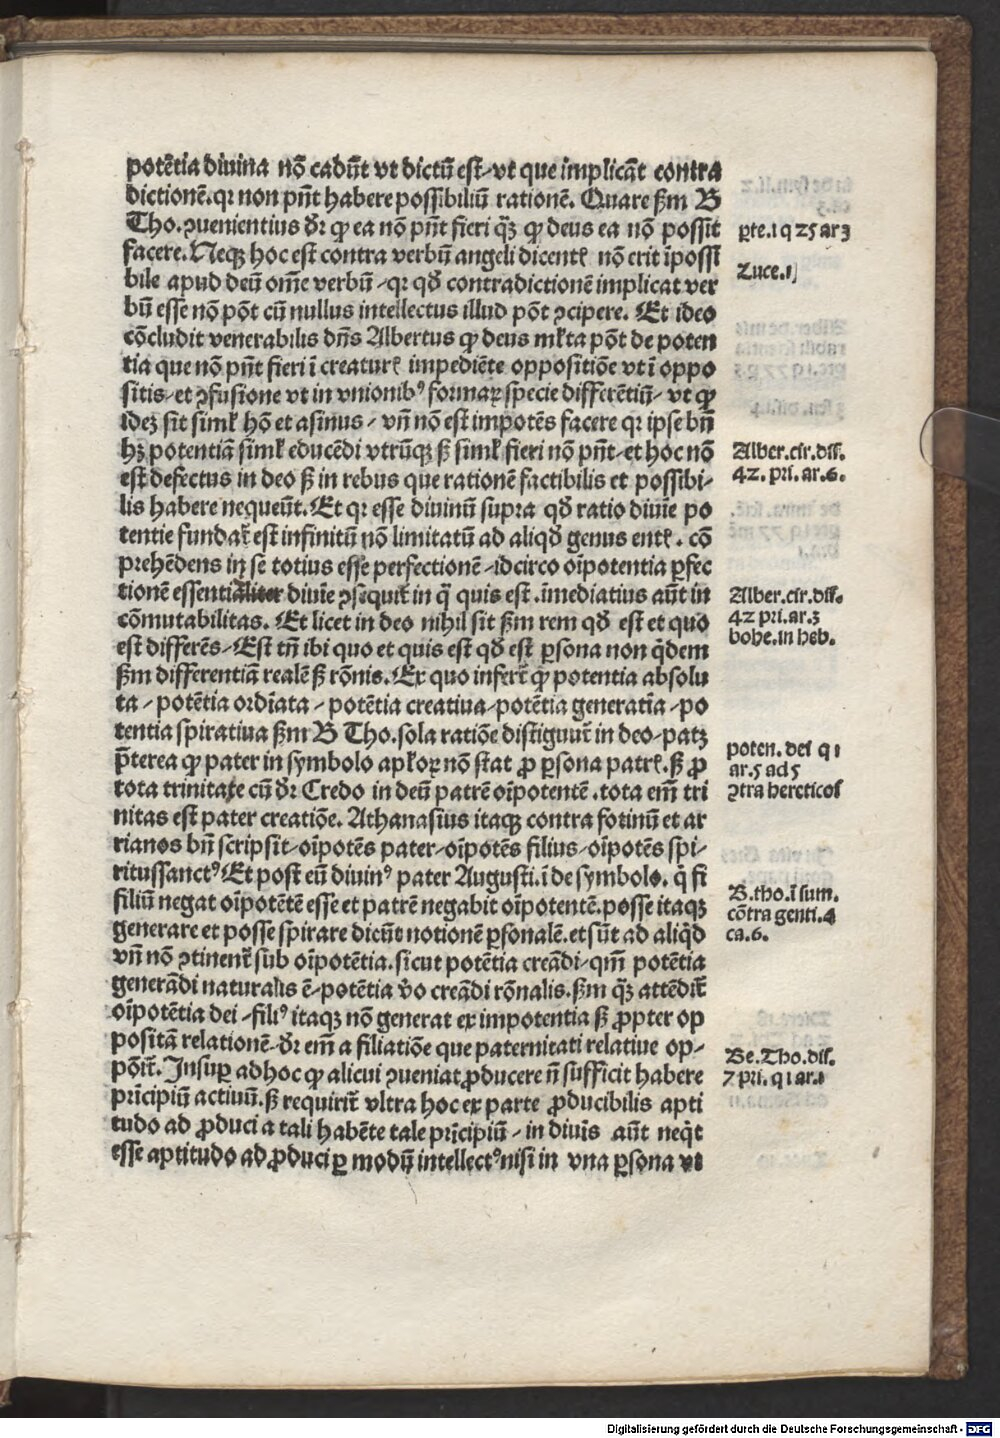 potētia diuina nō cadūt vt dictū est/vt que implicāt contra
dictionē.qꝛ non pn̄t habere possibiliū rationē. Quare ẜm B
Tho.ꝯuenientius dr̄ ꝙ ea nō pn̄t fieri q̄ꝫ ꝙ deus ea nō possit
facere.Neqꝫ hoc est contra verbū angeli dicentꝭ nō erit īpossi
bile apud deū om̄e verbū/qꝛ qd̄ contradictionē implicat ver
bū esse nō pōt cū nullus intellectus illud pōt ꝯcipere. Et ideo
cōcludit venerabilis dn̄s Albertus ꝙ deus ml̓ta pōt de poten
tia que nō pn̄t fieri ī creaturꝭ impediēte oppositiōe vt ī oppo
sitis/et ꝯfusione vt in vnionibꝰ formaꝝ specie differētiū/vt ꝙ
ideꝫ sit siml̓ hō et asinus/vn̄ nō est impotēs facere qꝛ ipse bn̄
hꝫ potentiā siml̓ educēdi vtrūqꝫ ẜꝫ siml̓ fieri nō pn̄t/et hoc nō
est defectus in deo ẜꝫ in rebus que rationē factibilis et possibi/
lis habere nequeūt.Et qꝛ esse diuinū supra qd̄ ratio diuīe po
tentie fundat̄ est infinitū nō limitatū ad aliqd̄ genus entꝭ. cō
prehēdens in se totius esse perfectionē/idcirco oīpotentia ꝑfec
tionē essentialiter diuīe ꝯsequit̄ in q̄ quis est.imediatius aūt in
cōmutabilitas. Et licet in deo nihil sit ẜm rem qd̄ est et quo
est differēs/Est tn̄ ibi quo et quis est qd̄ est ꝑsona non q̄dem
ẜm differentiā realē ẜꝫ rōnis.Ex quo infert̄ ꝙ potentia absolu
ta/potētia ordīata/potētia creatiua/potētia generatīa/po
tentia spiratiua ẜm B Tho.sola ratiōe distīguūt̄ in deo/patꝫ
p̄terea ꝙ pater in symbolo apl̓oꝝ nō stat ꝓ ꝑsona patrꝭ.ẜꝫ ꝓ
tota trinitate cū dr̄ Credo in deū patrē oīpotentē.tota em̄ tri
nitas est pater creatiōe. Athanasius itaqꝫ contra fotinū et ar
rianos bn̄ scripsit/oīpotēs pater/oīpotēs filius/oīpotēs spi/
ritussanctꝰ Et post eū diuinꝰ pater Augusti.ī de symbolo. q̄ si
filiū negat oīpotētē esse et patrē negabit oīpotentē.posse itaqꝫ
generare et posse spirare dicūt notionē ꝑsonalē.et sūt ad aliq̄d
vn̄ nō ꝯtinent̄ sub oīpotētia.sicut potētia creādi/qm̄ potētia
generādi naturalis ē/potētia v̄o creādi rōnalis.ẜm q̄ꝫ attēdit̄
oīpotētia dei/filiꝰ itaqꝫ nō generat ex impotentia ẜꝫ ꝓpter op
positā relationē/dr̄ em̄ a filiatiōe que paternitati relatiue op/
pōit̄.Insuꝑ ad hoc ꝙ alicui ꝯueniat ꝓducere n̄ sufficit habere
prīcipiū actiuū.ẜꝫ requirit̄ vltra hoc ex parte ꝓducibilis apti
tudo ad ꝓduci a tali habēte tale prīcipiū/in diuīs aūt neq̄t
esse aptitudo ad ꝓduci ꝑ modū intellectꝰ nisi in vna ꝑsona vt
ꝑte.1 q 25 ar 3
Luce.1
Alber.cir.dis.
42. pri. ar.6.
Alber.cir.dis.
42 pri.ar.3
bohe.in heb.
poten. dei q 1
ar.5 ad 5
ꝯtra hereticos
B.tho.ī sum.
cōtra genti.4
ca.6.
Be.Tho.dis.
7 pri. q 1 ar.1
Digitalisierung gefördert durch die Deutsche Forschungsgemeinschaft - DFG